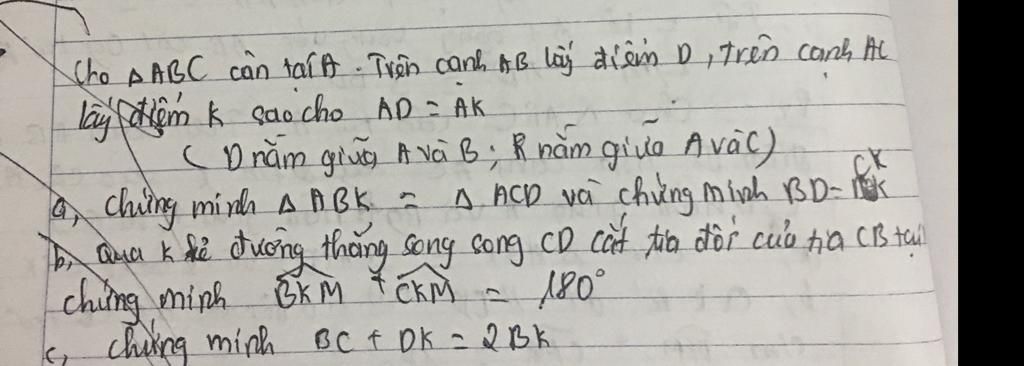 Cho △ABC cân tại A. Trên cạnh AB lấy điểm D, trên cạnh AC
lấy điểm K sao cho AD = AK
( D nằm giữa A và B ; K nằm giữa A và C)
a, Chứng minh △ ABK = △ ACD và chứng minh BD = CK
b, Qua K kẻ đường thẳng song song CD cắt tia đối của tia CB tại
chứng minh BKM + CKM = 180°
c, chứng minh BC + DK = 2BK